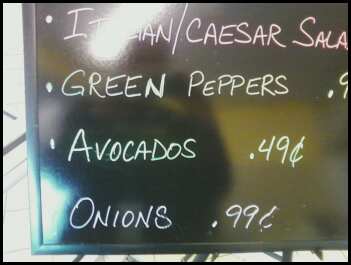 • ITALIAN/CAESAR SALA
• GREEN PEPPERS .9
• AVOCADOS .49¢
• ONIONS .99¢